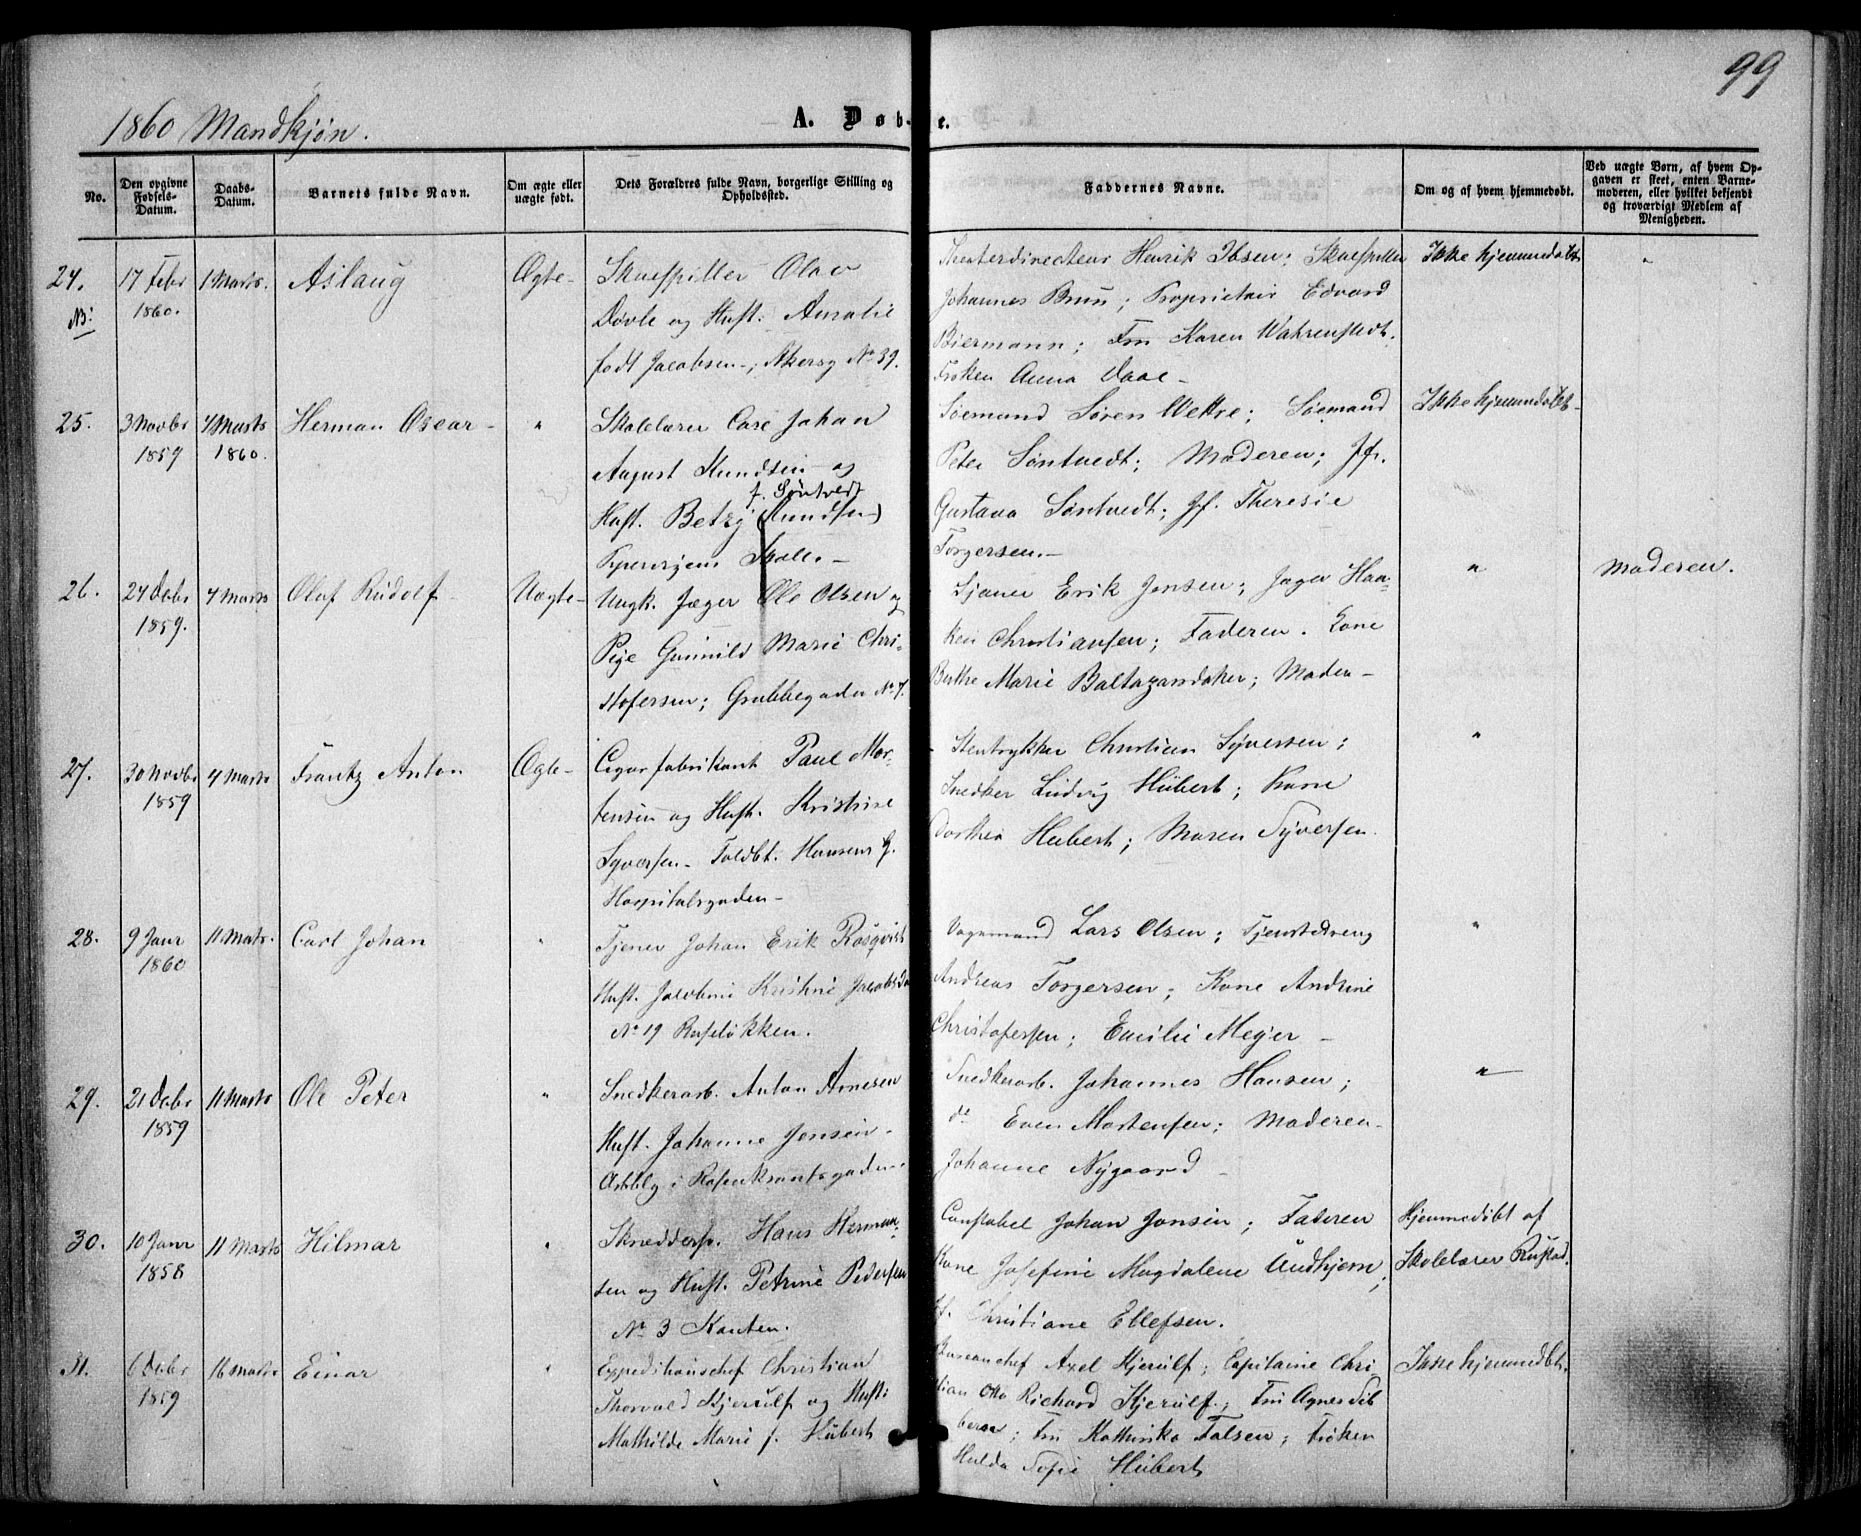 99
1860 Mandkjøn.
A. Døb- e.
No.
Den opgivne Fødsels-Datum.
Daabs-Datum.
Barnets fulde Navn.
Om ægte eller uægte født.
Dets Forældres fulde Navn, borgerlige Stilling og Opholdssted.
Faddernes Navne.
Om og af hvem hjemmedøbt.
Ved uægte Børn, af hvem Opgaven er skeet, enten Barnemoderen, eller hvilket bekjendt og troværdigt Medlem af Menigheden.
24. 17 Febr 1 Marts. Aslaug Ægte-
NB: 1860.
Skuespiller Olav
Døvle og Hust. Amalie
født Jacobsen-; Akersg No 39.
Theaterdirecteur Henrik Ibsen; Skuespiller
Johannes Brun; Proprietair Edvard
Biermann; Fru Karen Wahrenstedt.
Frøken Anna Daae -
Ikke hjemmedøbt "
25. 3 Novbr 4 Marts Herman Oscar - "
1859 1860.
Skolelærer Carl Johan
August Knudsen - og
f. Søntvedt
Hust. Betzy (Knudsen)
Pipervigens Skole. -
Søemand Søren Wettre; Søemand
Peter Søntvedt; Moderen; Jfr.
Gustava Søntvedt; Jf. Theresie
Torgersen. -
Ikke hjemmedøbt -
26. 24 Decbr 4 Marts Olaf Rudolf Uægte-
1859.
Ungk. Jæger Ole Olsen og
Pige Gunnild Marie Chri-
stofersen; Grubbegaden No 7.
Sjouer Erik Jensen; Jæger Haa-
ken Christiansen; Faderen. Kone
Berthe Marie Baltazarsdatter; Moder -
"
Moderen.
27. 30 Novbr 4 Marts Frantz Anton Ægte-
1859
Cigarfabrikant Paul Mor-
tensen og Hust. Kristine
Syversen - Toldbt. Hansens G.
Hospitalsgaden -
Stentrykker Christian Syversen;
Snedker Ludvig Hübert; Kone
Dorthea Hübert; Maren Syversen.
"
28. 9 Janr 11 Marts. Carl Johan "
1860
Tjener Johan Erik Rosqvist
Hust. Jacobine Kristine Jacobsd
No 19 Ruseløkken.
Vognmand Lars Olsen; Tjenstedreng
Andreas Torgersen; Kone Andrine
Christofersen; Emilie Meyer -
"
29. 21 Decbr 11 Marts Ole Peter "
1859
Snedkerarb. Anton Arnesen
Hust. Johanne Jensen -
i Rosenkrantsgaden
Snedkerarb. Johannes Hansen;
do Even Mortensen; Moderen -
Johanne Nygaard -
"
30. 10 Janr 11 Marts Hilmar "
1858
Skræddersv. Hans Herman-
sen og Hust. Petrine Pedersen
No 3 Kanten.
Constabel Johan Jonsen; Faderen
Kone Josefine Magdalene Undhjem;
Jf. Christiane Ellefsen.
Hjemmedøbt af
Skolelærer Rustad.
31. 6 Decbr 16 Marts Einar "
1859
Expeditionschef Christian
Thorvald Kjerulf og Hust.
Mathilde Marie f. Hübert
Bureauchef Axel Kjerulf; Capitaine Chri
stian Otto Richard Kjerulf; Fru Agnes Sib
bern; Fru Kathinka Falsen; Frøken
Hulda Sofie Hübert
Ikke hjemmedøbt.